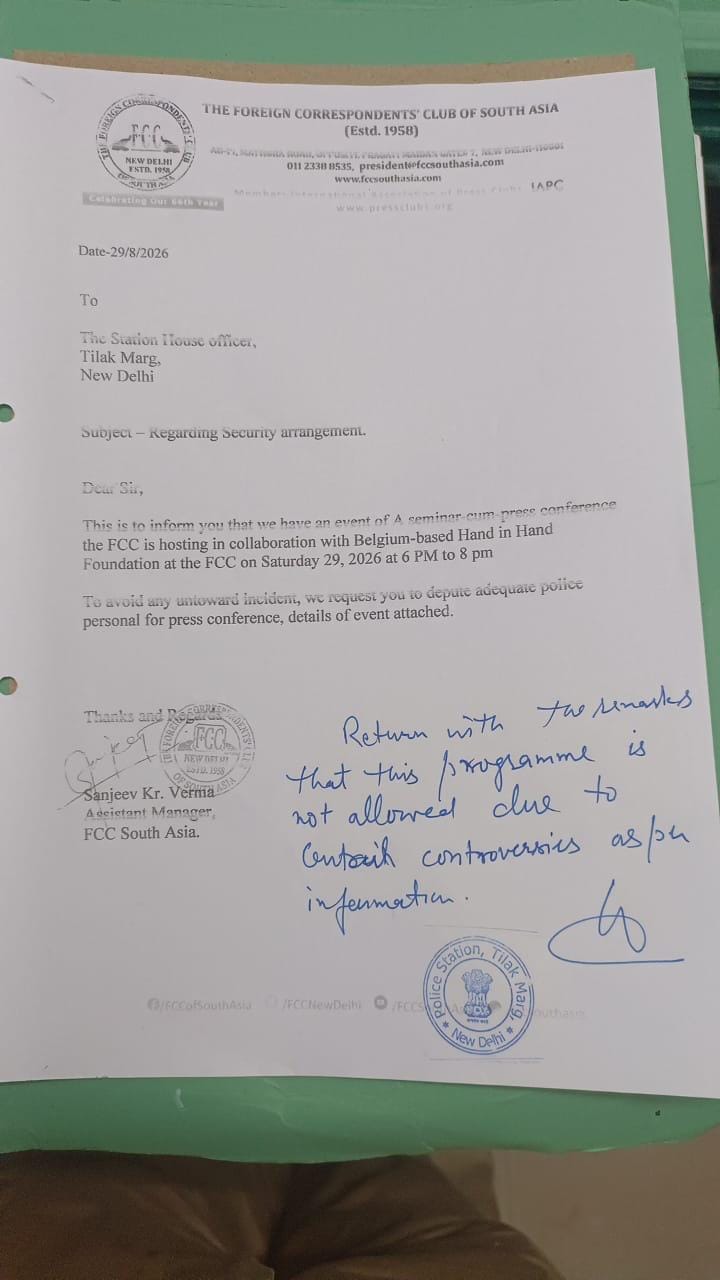 THE FOREIGN CORRESPONDENTS' CLUB OF SOUTH ASIA
(Estd. 1958)
THE FOREIGN CORRESPONDENTS' CLUB
FCC
NEW DELHI
ESTD. 1958
OF SOUTH ASIA
MATHURA ROAD, OPPOSITE PRAGATI MAIDAN GATE 7, NEW DELHI-110001
011 2338 8535, president@fccsouthasia.com
www.fccsouthasia.com
Celebrating Our 66th Year
Member: International Association of Press Clubs IAPC
www.pressclubs.org
Date-29/8/2026
To
The Station House officer,
Tilak Marg,
New Delhi
Subject – Regarding Security arrangement.
Dear Sir,
This is to inform you that we have an event of A seminar-cum-press conference
the FCC is hosting in collaboration with Belgium-based Hand in Hand
Foundation at the FCC on Saturday 29, 2026 at 6 PM to 8 pm
To avoid any untoward incident, we request you to depute adequate police
personal for press conference, details of event attached.
Thanks and Regards
FCC
NEW DELHI
ESTD. 1958
OF SOUTH ASIA
Sanjeev Kr. Verma
Assistant Manager,
FCC South Asia.
Return with the remarks
that this programme is
not allowed due to
controversies as per
information.
/FCCofSouthAsia /FCCNewDelhi
Police Station, Tilak Marg,
New Delhi